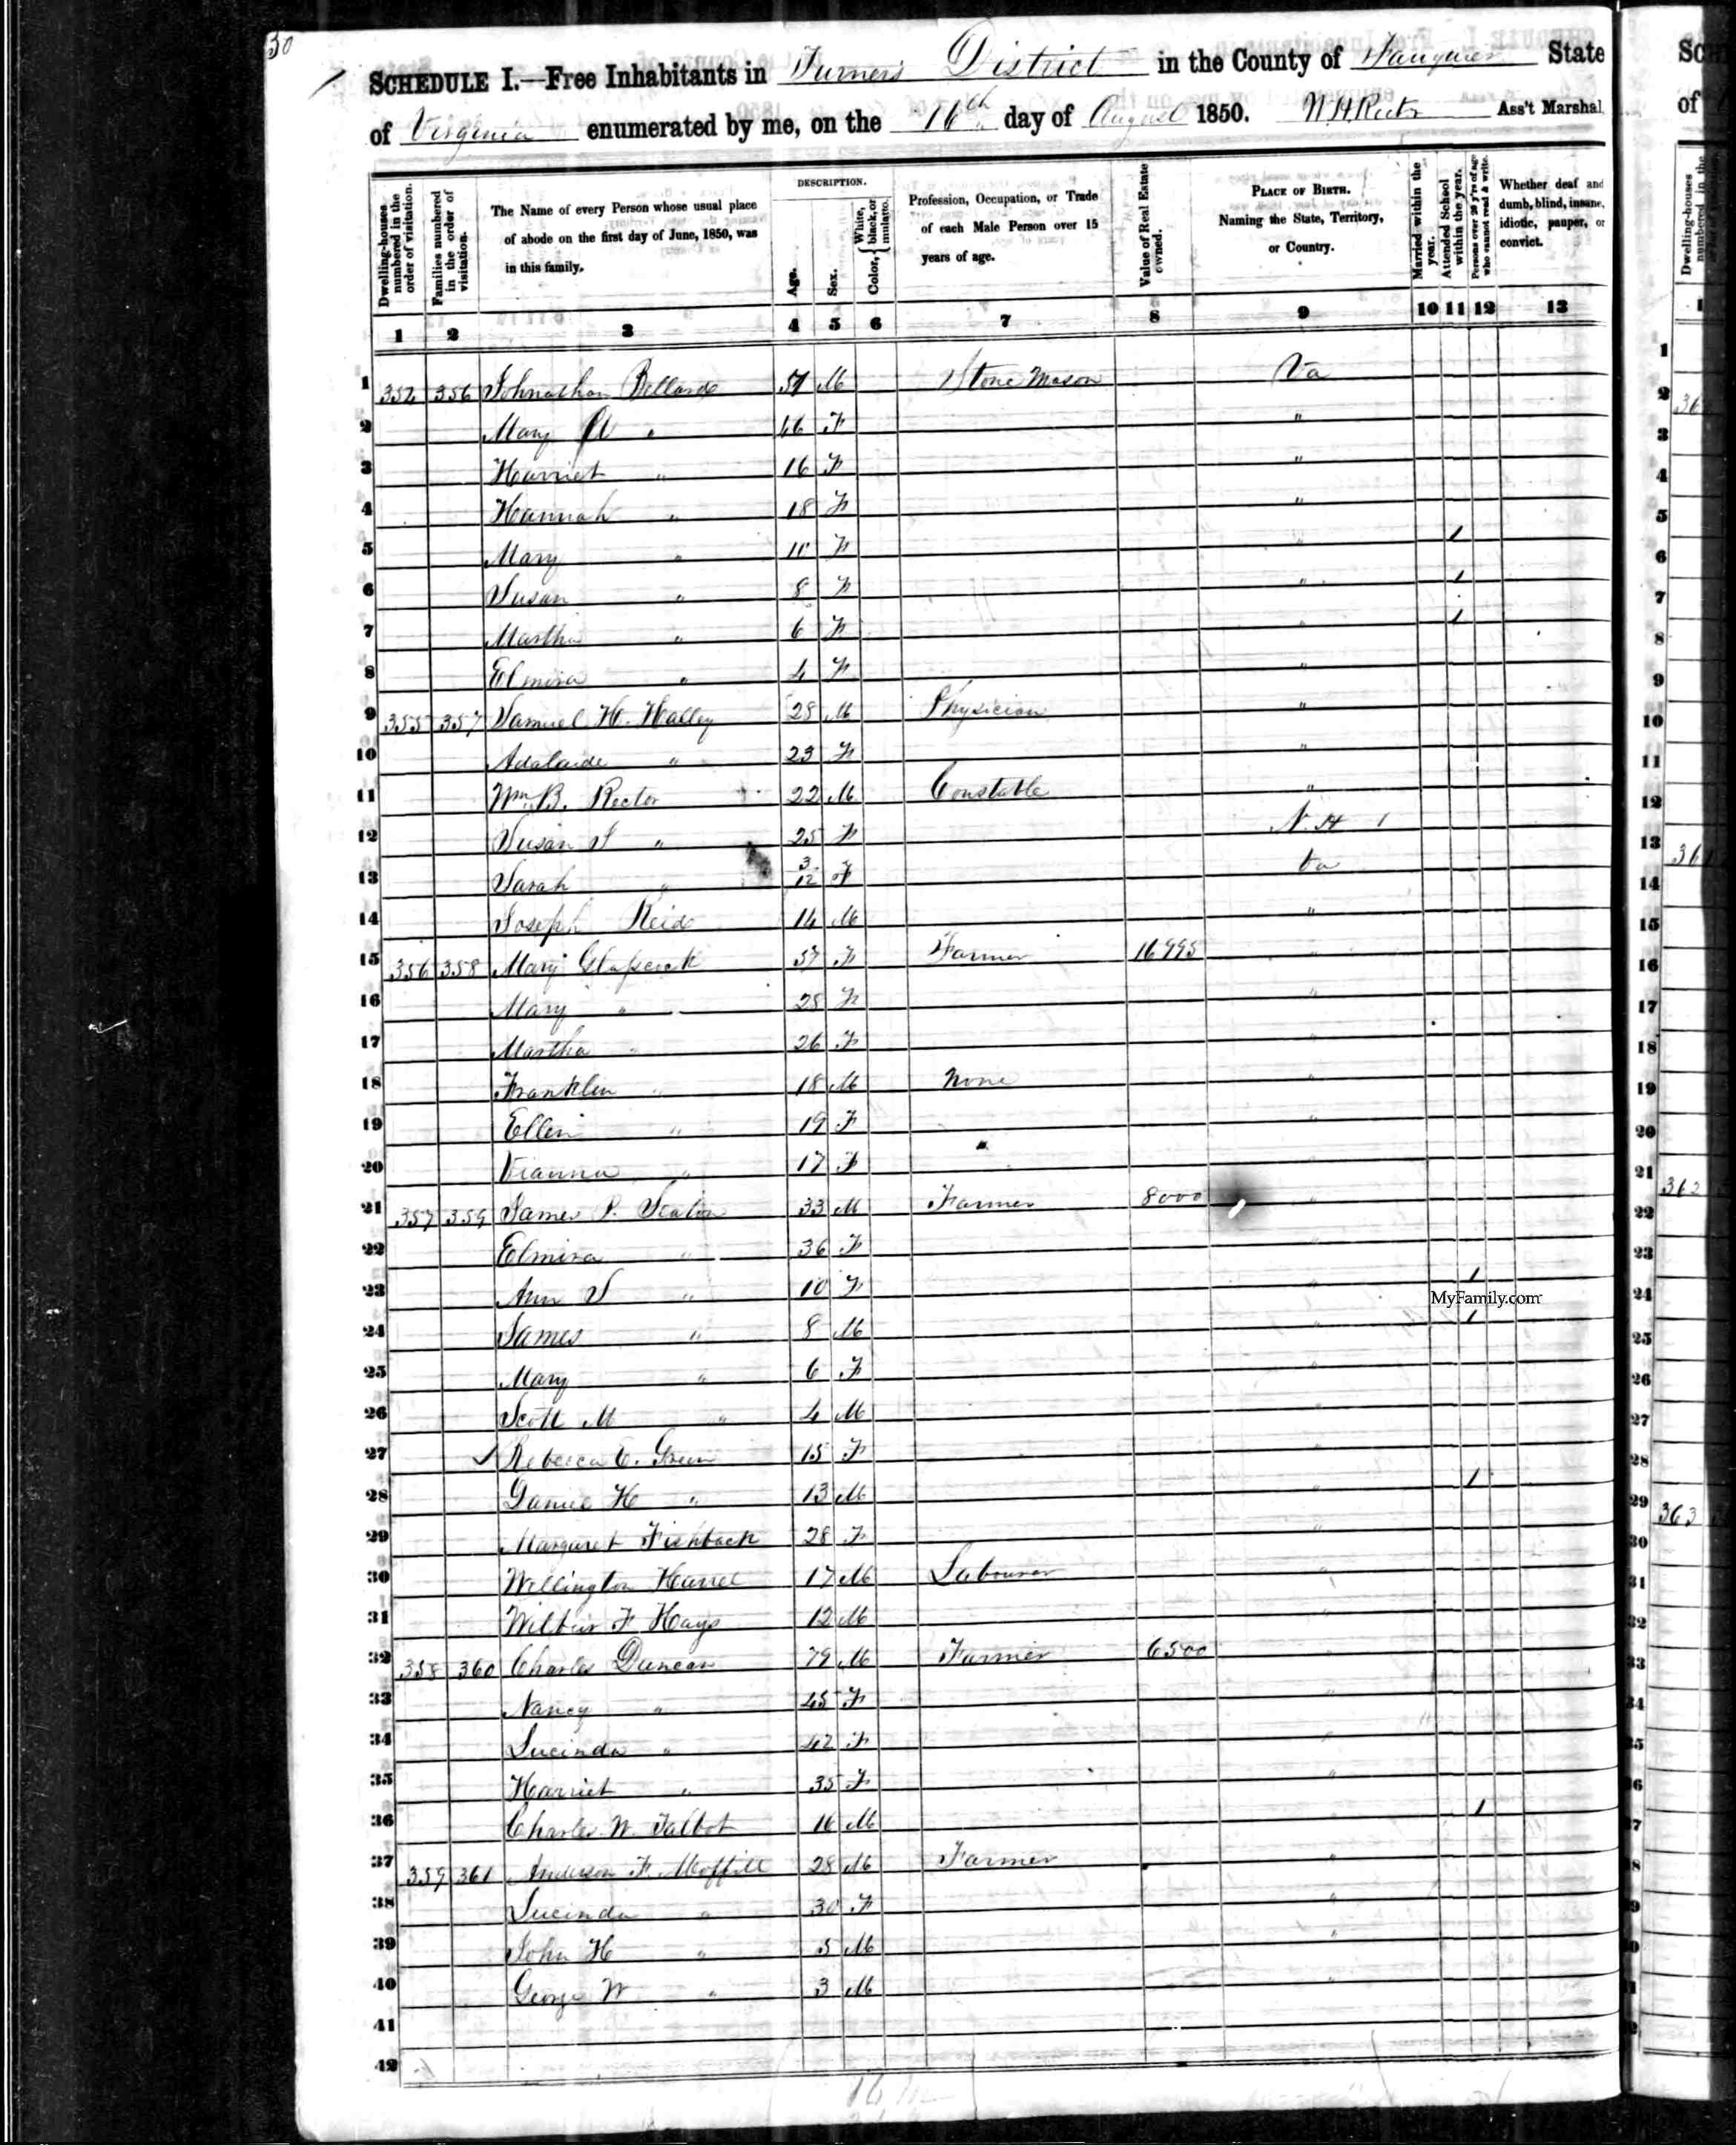 30
SCHEDULE I.—Free Inhabitants in Turner's District in the County of Fauquier State
of Virginia enumerated by me, on the 16th day of August 1850. Ass't Marshal
Dwelling-houses numbered in the order of visitation.
Families numbered in the order of visitation.
The Name of every Person whose usual place of abode on the first day of June, 1850, was in this family.
DESCRIPTION.
Age.
Sex.
Color, { White, black, or mulatto.
Profession, Occupation, or Trade of each Male Person over 15 years of age.
Value of Real Estate owned.
PLACE OF BIRTH. Naming the State, Territory, or Country.
Married within the year.
Attended School within the year.
Persons over 20 y'rs of age who cannot read & write.
Whether deaf and dumb, blind, insane, idiotic, pauper, or convict.
1 2 3 4 5 6 7 8 9 10 11 12 13
1 352 356 Johnathan 57 M Stone Mason Va
2 Mary " 46 F "
3 Harriet " 16 F "
4 Hannah " 18 F "
5 Mary " 10 F " 1
6 Susan " 8 F " 1
7 Martha " 6 F " 1
8 Elmira " 4 F "
9 355 357 Samuel H. Halley 28 M Physician "
10 Adalaide " 23 F "
11 Wm B. Rector 22 M Constable "
12 Susan S " 25 F N.H 1
13 Sarah " 3/12 F Va
14 Joseph Reid 14 M "
15 356 358 Mary Glasscock 57 F Farmer 16995 "
16 Mary " 28 F "
17 Martha " 26 F "
18 Franklin " 18 M None "
19 Ellen " 19 F "
20 Vianna " 17 F
21 357 359 James P. 33 M Farmer 8000 "
22 Elmira " 36 F "
23 Ann S " 10 F " 1
24 James " 8 M " 1
25 Mary " 6 F "
26 Scott M " 4 M "
27 Rebecca C. Green 15 F "
28 H " 13 M " 1
29 Margaret Fishback 28 F "
30 Wellington 17 M Labourer "
31 Wilbur F Hays 12 M "
32 358 360 Charles Duncan 79 M Farmer 6500
33 Nancy " 45 F "
34 Lucinda " 42 F "
35 Harriet " 35 F "
36 Charles W. Talbot M 1
37 359 361 Anderson F. Moffitt 28 M Farmer "
38 Lucinda " 30 F "
39 John H " 5 M "
40 George W " 3 M "
41
42
MyFamily.com